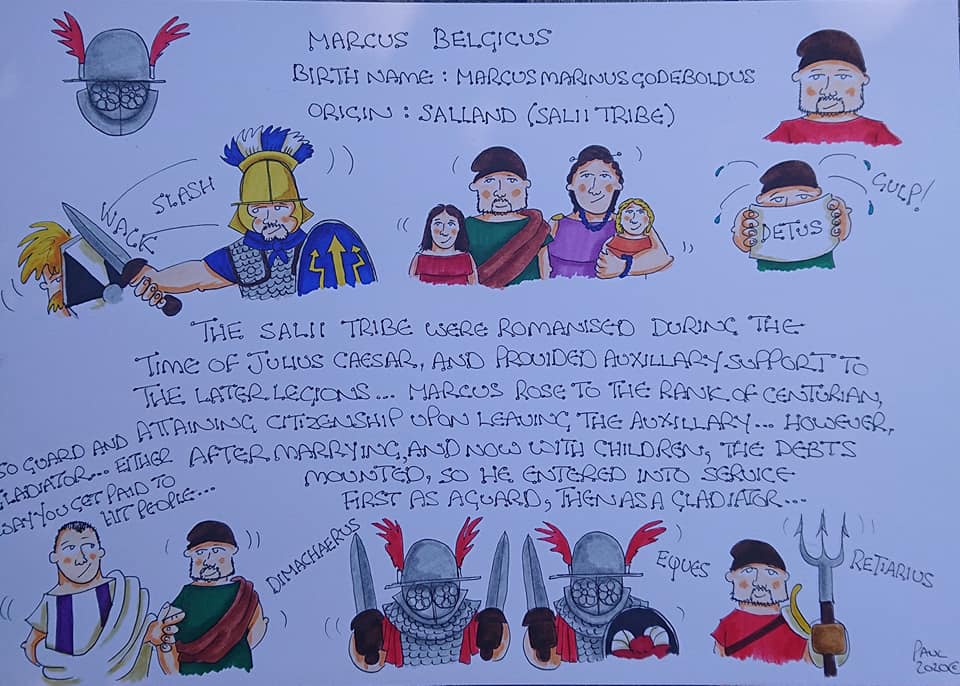 MARCUS BELGICUS
BIRTH NAME : MARCUS MARINUS GODEBOLDUS
ORIGIN : SALLAND (SALII TRIBE)
WACK
SLASH
GULP!
DETUS
THE SALII TRIBE WERE ROMANISED DURING THE
TIME OF JULIUS CAESAR, AND PROVIDED AUXILLARY SUPPORT TO
THE LATER LEGIONS... MARCUS ROSE TO THE RANK OF CENTURIAN,
ATTAINING CITIZENSHIP UPON LEAVING THE AUXILLARY... HOWEVER,
AFTER MARRYING, AND NOW WITH CHILDREN, THE DEBTS
MOUNTED, SO HE ENTERED INTO SERVICE
FIRST AS A GUARD, THEN AS A GLADIATOR...
SO GUARD AND
GLADIATOR... EITHER
WAY YOU GET PAID TO
HIT PEOPLE...
DIMACHAERUS
EQUES
RETIARIUS
PAUL
2020©